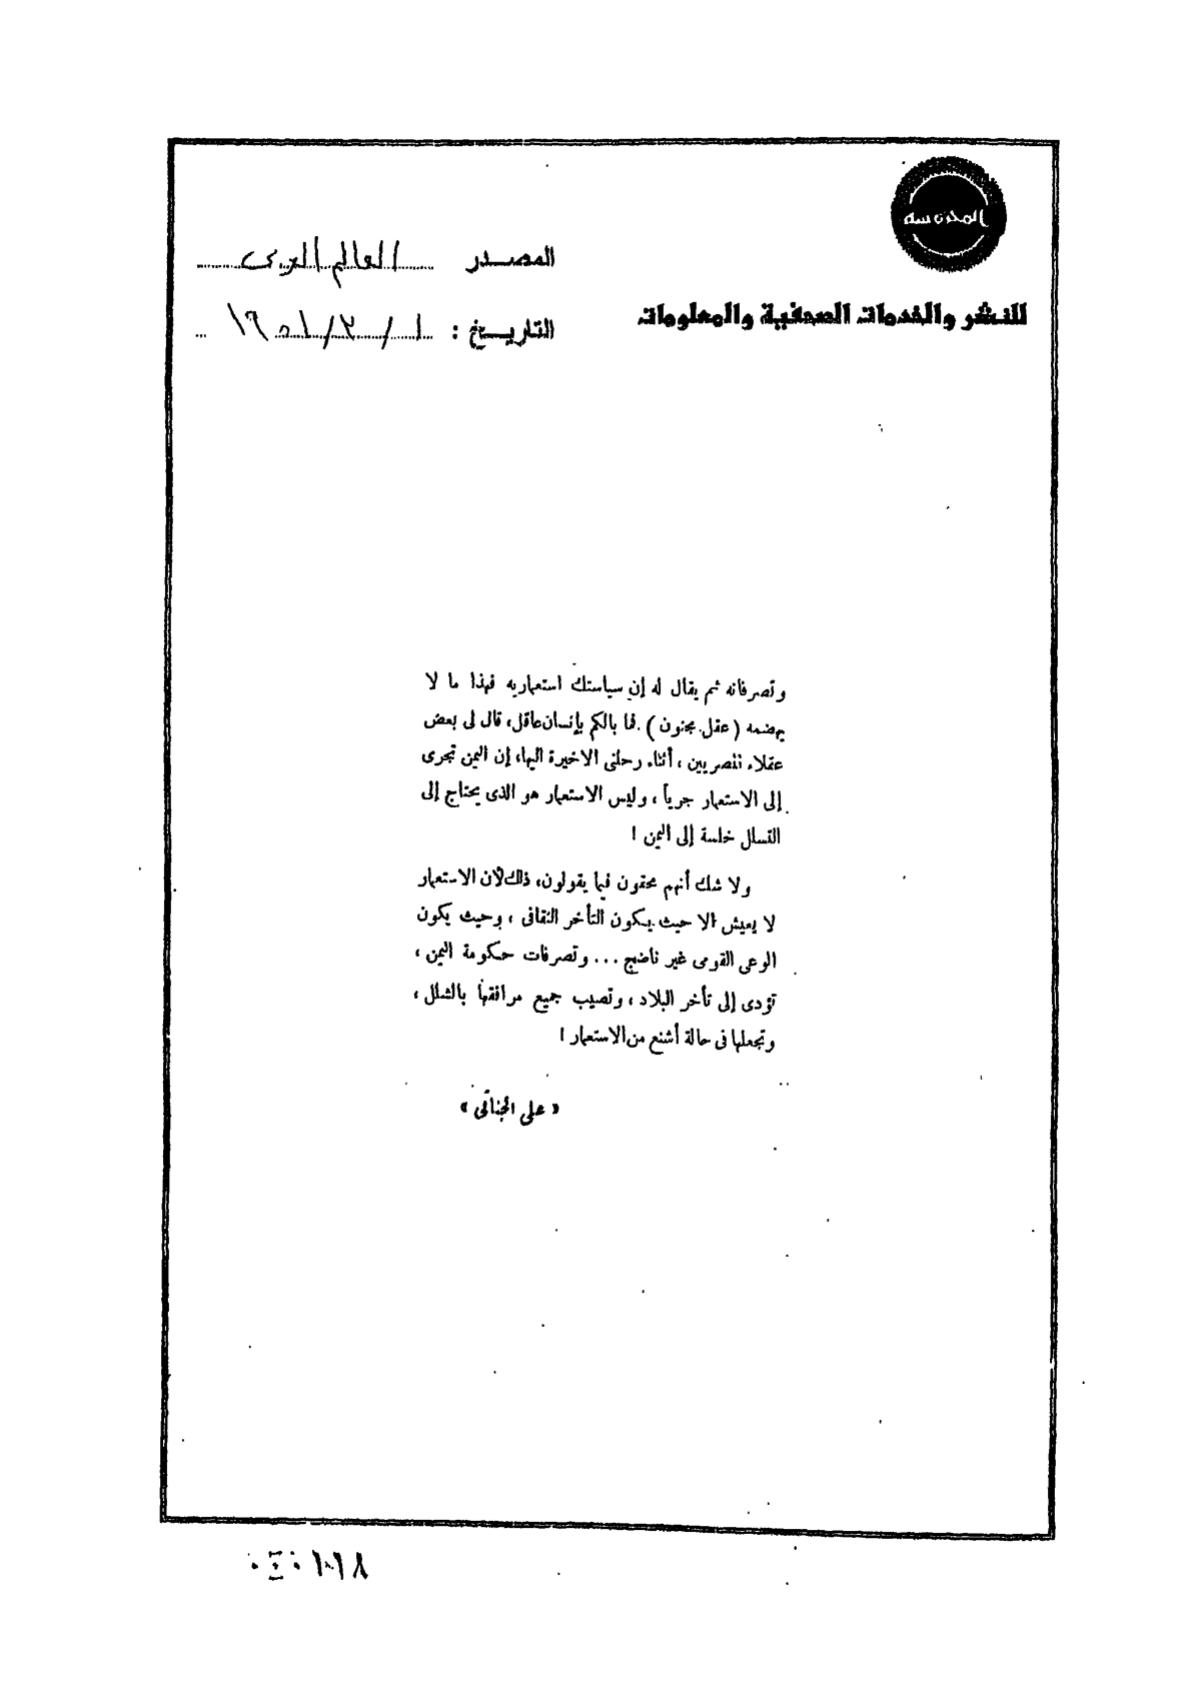 المحروسة
المصدر العالم العربى
للنشر والخدمات الصحفية والمعلومات
التاريخ : ١ / ٣ / ١٩٥١
وتصرفاته ثم يقال له إن سياستك استعماريه فهذا ما لا
يهضمه ( عقل مجنون ) . فما بالكم بإنسان عاقل، قال لى بعض
عقلاء المصريين ، أثناء رحلتى الاخيرة اليها، إن اليمن تجرى
إلى الاستعمار جرياً ، وليس الاستعمار هو الذى يحتاج إلى
التسلل خلسة إلى اليمن !
ولا شك أنهم محقون فيما يقولون، ذلك لأن الاستعمار
لا يعيش الا حيث يكون التأخر الثقافى ، وحيث يكون
الوعى القومى غير ناضج ... وتصرفات حكومة اليمن ،
تؤدى إلى تأخر البلاد ، وتصيب جميع مرافقها بالشلل ،
وتجعلها فى حالة أشنع من الاستعمار !
« على الجناتى »